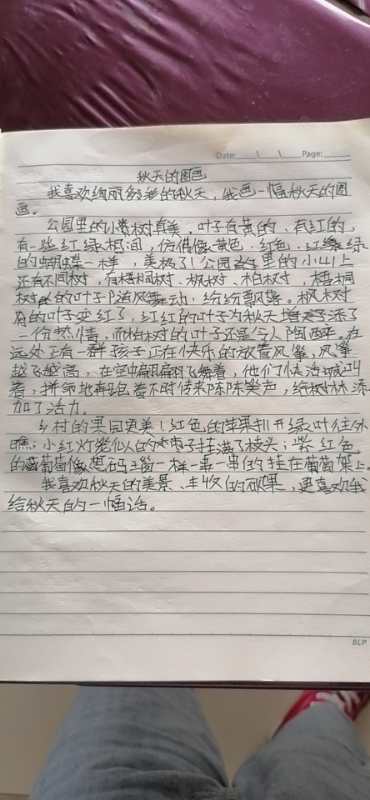 Date: \ \ Page:
秋天的图画
我喜欢绚丽多彩的秋天，我画一幅秋天的图
画。
公园里的小黄树真美，叶子有黄的、有红的，
有一些红绿相间，仿佛像黄色、红色、红绿
的蝴蝶一样，美极了！公园里的小山上
还有不同树，有梧桐树、枫树、柏树，梧桐
树的叶子随风舞动，纷纷飘落。枫树
的叶子变红了，红红的叶子为秋天增添了
一份热情，而柏树的叶子还是令人陶醉。在
远处正有一群孩子正在快乐的放风筝，风筝
越飞越高，在空中翩翩飞舞着，他们快活喊叫
着，拼命地奔跑着不时传来阵阵笑声，给树林添
加了活力。
乡村的果园更美！红色的苹果扒开绿叶往外
瞧；小红灯笼似的枣子挂满了枝头；紫红色
的葡萄像一样一串一串的挂在葡萄架上。
我喜欢秋天的美景、丰收的硕果，更喜欢我
给秋天的一幅话。
BLP